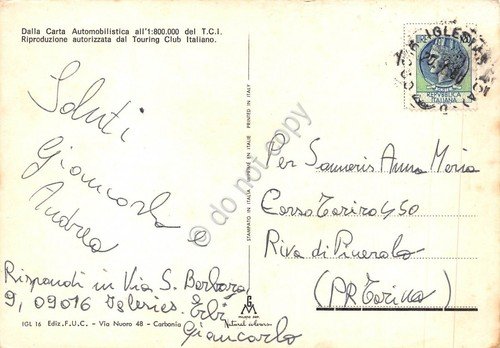 Dalla Carta Automobilistica all'1:800.000 del T.C.I.
Riproduzione autorizzata dal Touring Club Italiano.
IGLESIAS
REPUBBLICA
ITALIANA
Saluti
Giancarlo e
Andrea
Rispondi in Via S. Barbara,
9, 09016 Iglesies
Giancarlo
STAMPATO IN ITALIA - PRINTED IN ITALY
do not copy
Per Anna Maria
Corso Torino 450
Riva di Pinerolo
(PR Torino)
IGL 16 Ediz. F.U.C. - Via Nuoro 48 - Carbonia